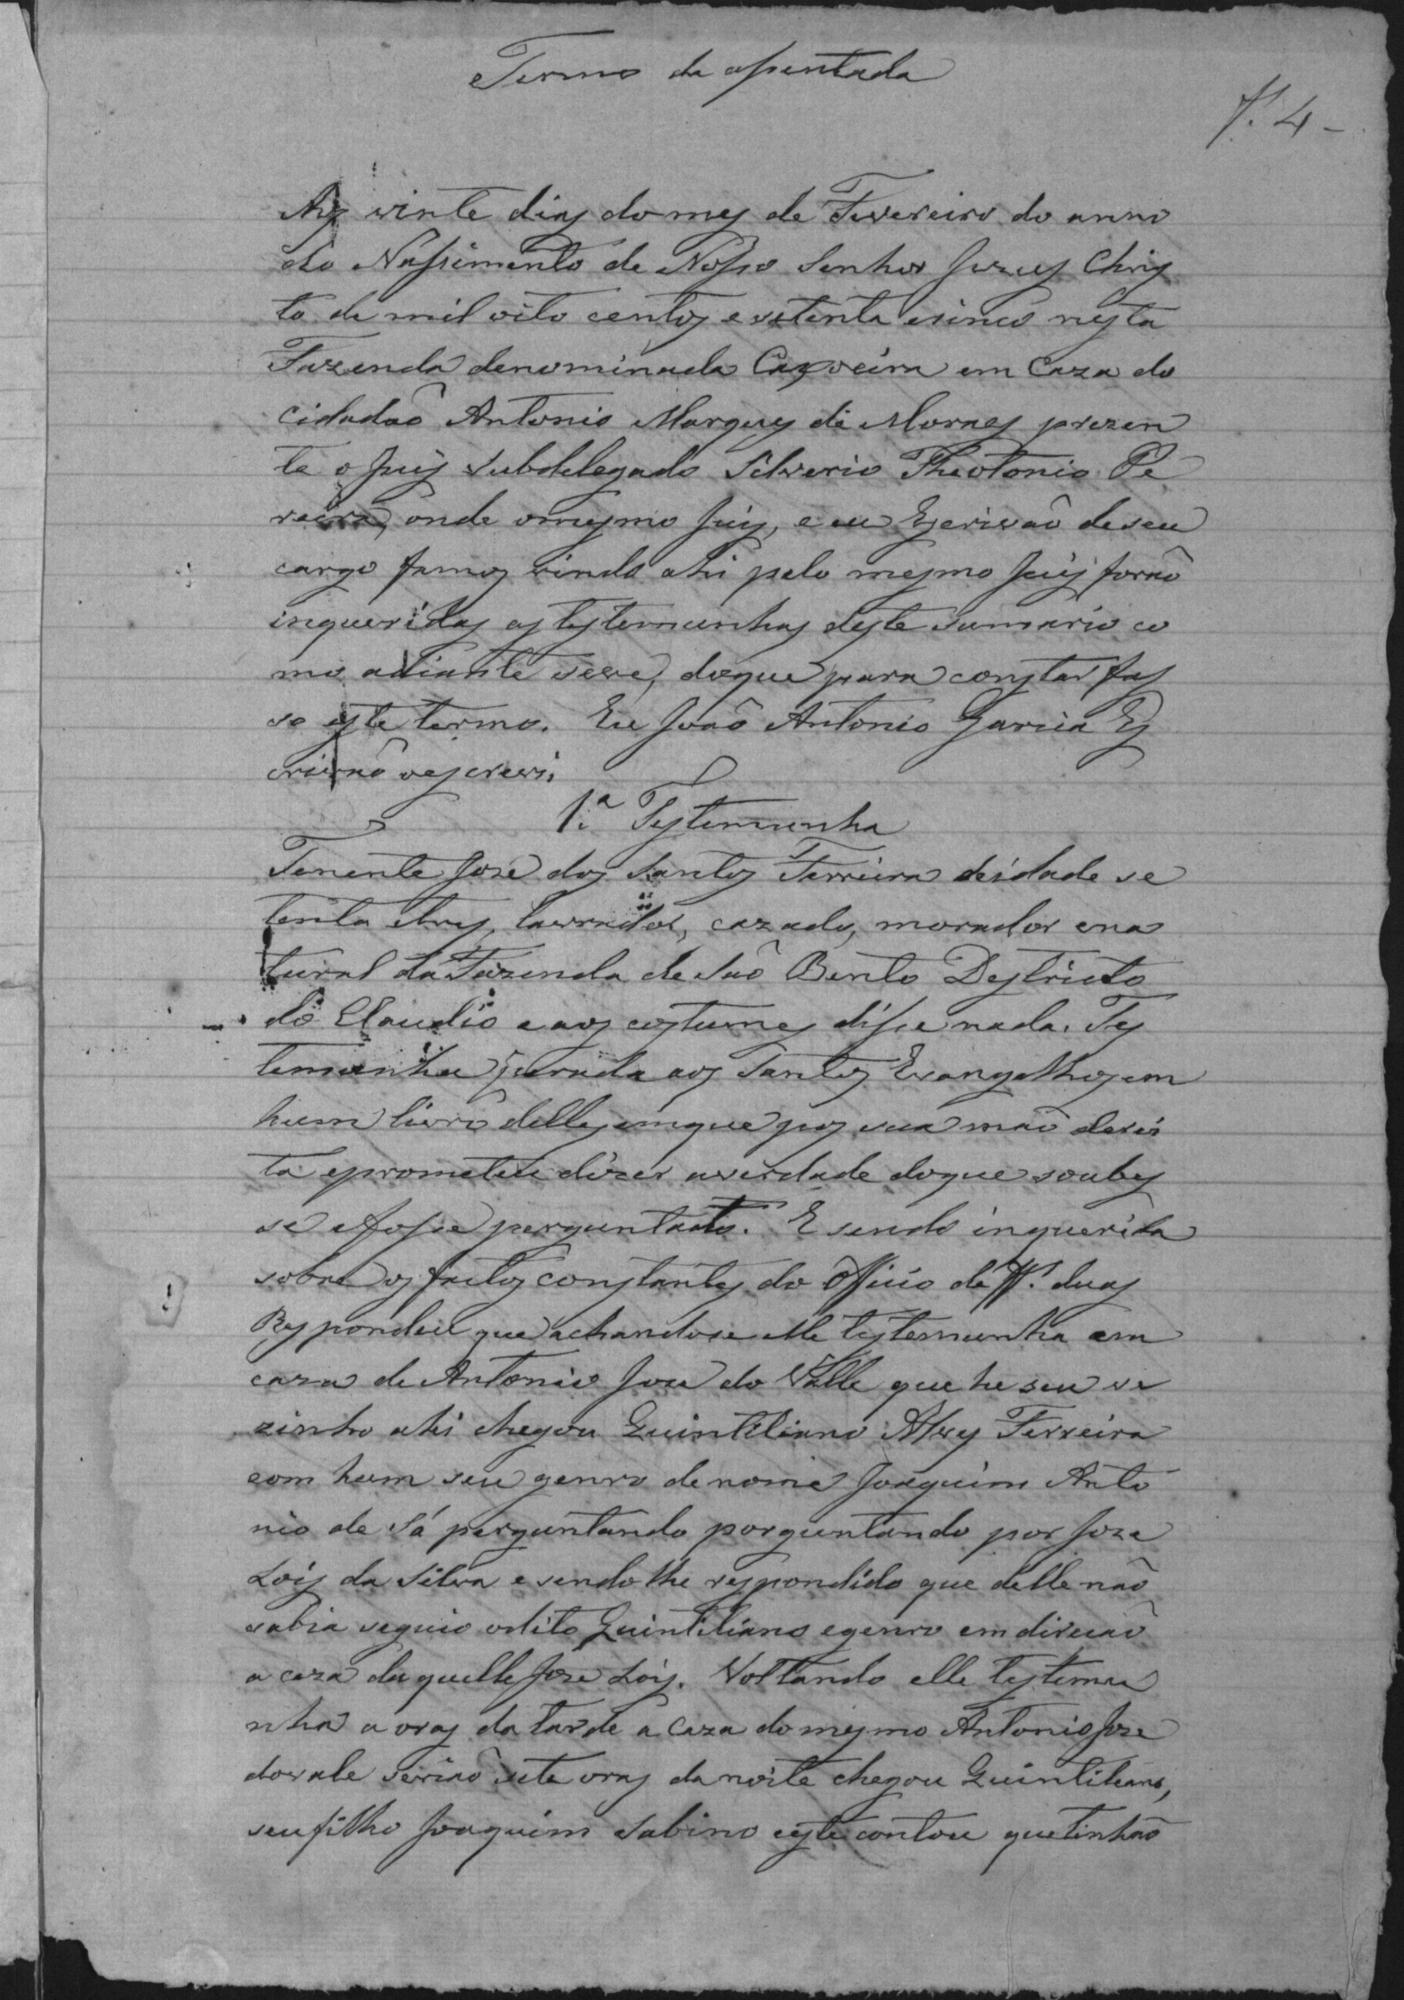 Termo da assentada
f. 4-
Aos vinte dias do mes de Fevereiro do anno
do Nassimento de Nosso Senhor Jezus Chris
to de mil oito centos e setenta e sinco nesta
Fazenda denominada Caxoeira em Caza do
Cidadaõ Antonio Marques de Moraes prezen
te o Juis Subdelegado Silverio Theotonio Pe
reira, onde o mesmo Juis, e eu Escrivaõ de seu
cargo famos vindo ahi pelo mesmo Juis foraõ
inqueridas as testemunhas deste sumario co
mo adiante seve, doque para constar fas
so este termo. Eu Joaõ Antonio Garcia Es
crivaõ oescrevi.
1.ª Testemunha
Tenente Joze dos Santos Ferreira deidade se
tenta etres, lavrador, cazado, morador ena
tural da Fazenda de Saõ Bento Destricto
do Claudio e aos costumes disse nada. Tes
temunha jurada aos Santos Evangelhos em
hum livro delles emque pos sua maõ derei
ta eprometeu dizer averdade doque soubes
se efosse perguntado. E sendo inquerida
sobre os factos constantes do Officio de ff. duas
Respondeu que achandose elle testemunha em
caza de Antonio Joze do Valle que he seu ve
zinho ahi chegou Quintiliano Alves Ferreira
com hum seu genro de nome Joaquim Anto
nio de Sá perguntando porguntando por Joze
Lois da Silva e sendo lhe respondido que delle naõ
sabia seguio odito Quintiliano egenro em direcaõ
a caza daquelle Joze Lois. Voltando elle testemu
nha a oras da tarde a caza do mesmo Antonio Joze
dovale seriaõ sete oras da noite chegou Quintiliano,
seu filho Joaquim Sabino eeste contou quetinhaõ